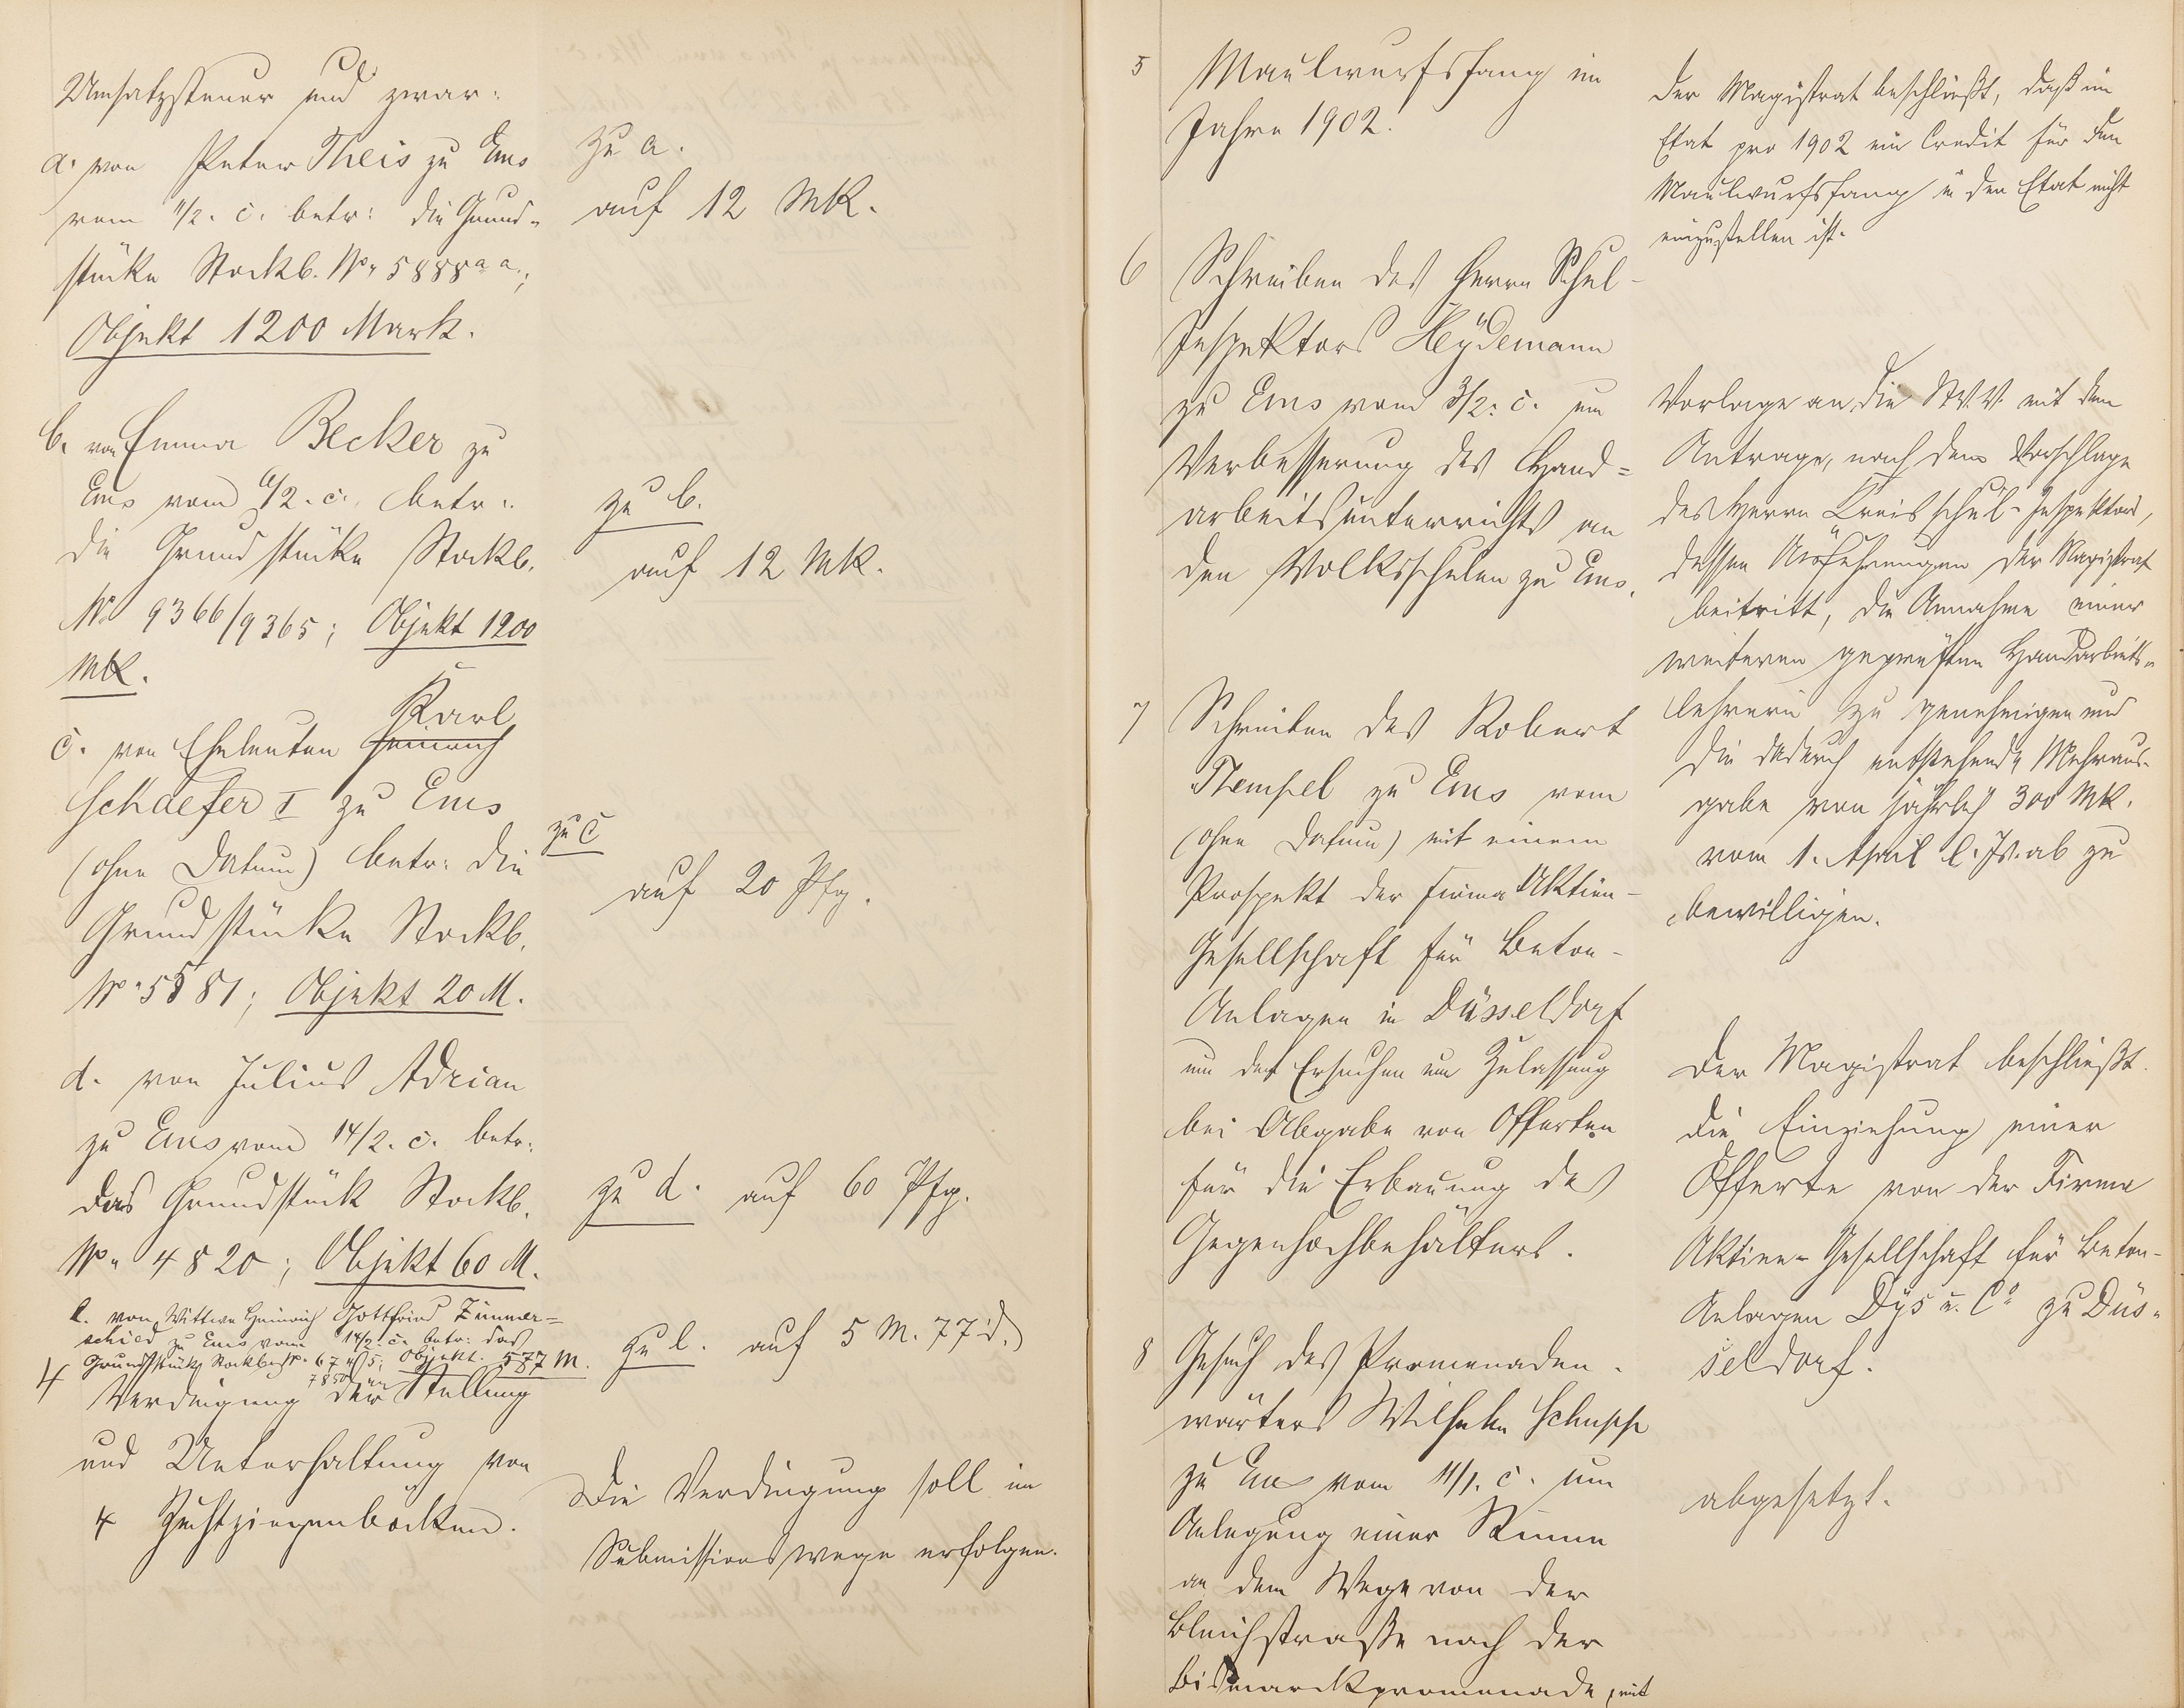 Umsatzsteuer und zwar:
a. von Peter Theis zu Ems
vom 11/2. c. betr: die Grund-
stücke Stockb. No. 5888 a a.;
Objekt 1200 Mark.
zu a.
auf 12 Mk.
b. von Emma Becker zu
Ems vom 6/2. c. betr:
die Grundstücke Stockb.
No 9366/9365; Objekt 1200
Mk.
zu b.
auf 12 Mk.
Karl
c. von Eheleuten Heinrich
Schaefer I zu Ems
(ohne Datum) betr: die
Grundstücke Stockb.
No. 5581; Objekt 20 M.
zu c
auf 20 Pfg.
d. von Julius Adrian
zu Ems vom 14/2. c. betr:
das Grundstück Stockb.
No. 4820; Objekt 60 M.
zu d. auf 60 Pfg.
e. von Wittwe Heinrich Gottfried Zimmer=
schied zu Ems vom 14/2. c. betr: das
Grundstück Stockb. No. 67 5; Objekt. 577 M.
7850
zu e. auf 5 M. 77 d.
4 Verdingung der Stellung
und Unterhaltung von
4 Zuchtziegenböcken.
Die Verdingung soll im
Submissionswege erfolgen.
5 Maulwurfsfang im
Jahre 1902.
Der Magistrat beschließt, daß im
Etat pro 1902 ein Credit für den
Maulwurfsfang in den Etat nicht
einzustellen ist.
6 Schreiben des Herrn Schul-
Inspektors Heydemann
zu Ems vom 3/2. c. um
Verbesserung des Hand=
arbeitsunterrichts an
den Volksschulen zu Ems.
Vorlage an die St.V.V. mit dem
Antrage, nach dem Vorschlage
des Herrn Kreisschul-Inspektors,
dessen Ausführungen der Magistrat
beitritt, die Annahme einer
weiteren geprüften Handarbeits-
lehrerin zu genehmigen und
die dadurch entstehende Mehraus-
gabe von jährlich 300 Mk.
vom 1. April l. Js. ab zu
bewilligen.
7 Schreiben des Robert
Stempel zu Ems vom
(ohne Datum) mit einem
Prospekt der Firma Aktien-
Gesellschaft für Beton-
Anlagen in Düsseldorf
um das Ersuchen um Zulassung
bei Abgabe von Offerten
für die Erbauung des
Gegenhochbehälters.
Der Magistrat beschließt
die Einziehung einer
Offerte von der Firma
Aktien-Gesellschaft für Beton-
Anlagen Dys u. Co zu Düs-
seldorf.
8 Gesuch des Promenaden-
wärters Wilhelm Schupp
zu Ems vom 11/1. c. um
Anlegung einer Rinne
an dem Wege von der
Bleichstraße nach der
Bismarckpromenade, mit
abgesetzt.